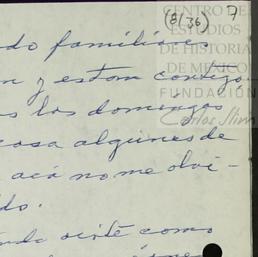 (8/36) 7
CENTRO DE
ESTUDIOS
DE HISTORIA
DE MÉXICO
FUNDACIÓN
Carlos Slim
ndo familiares
n y estan contigo
s los domingos
casa algunes de
acá no me olvi-
do.
ando oirté como